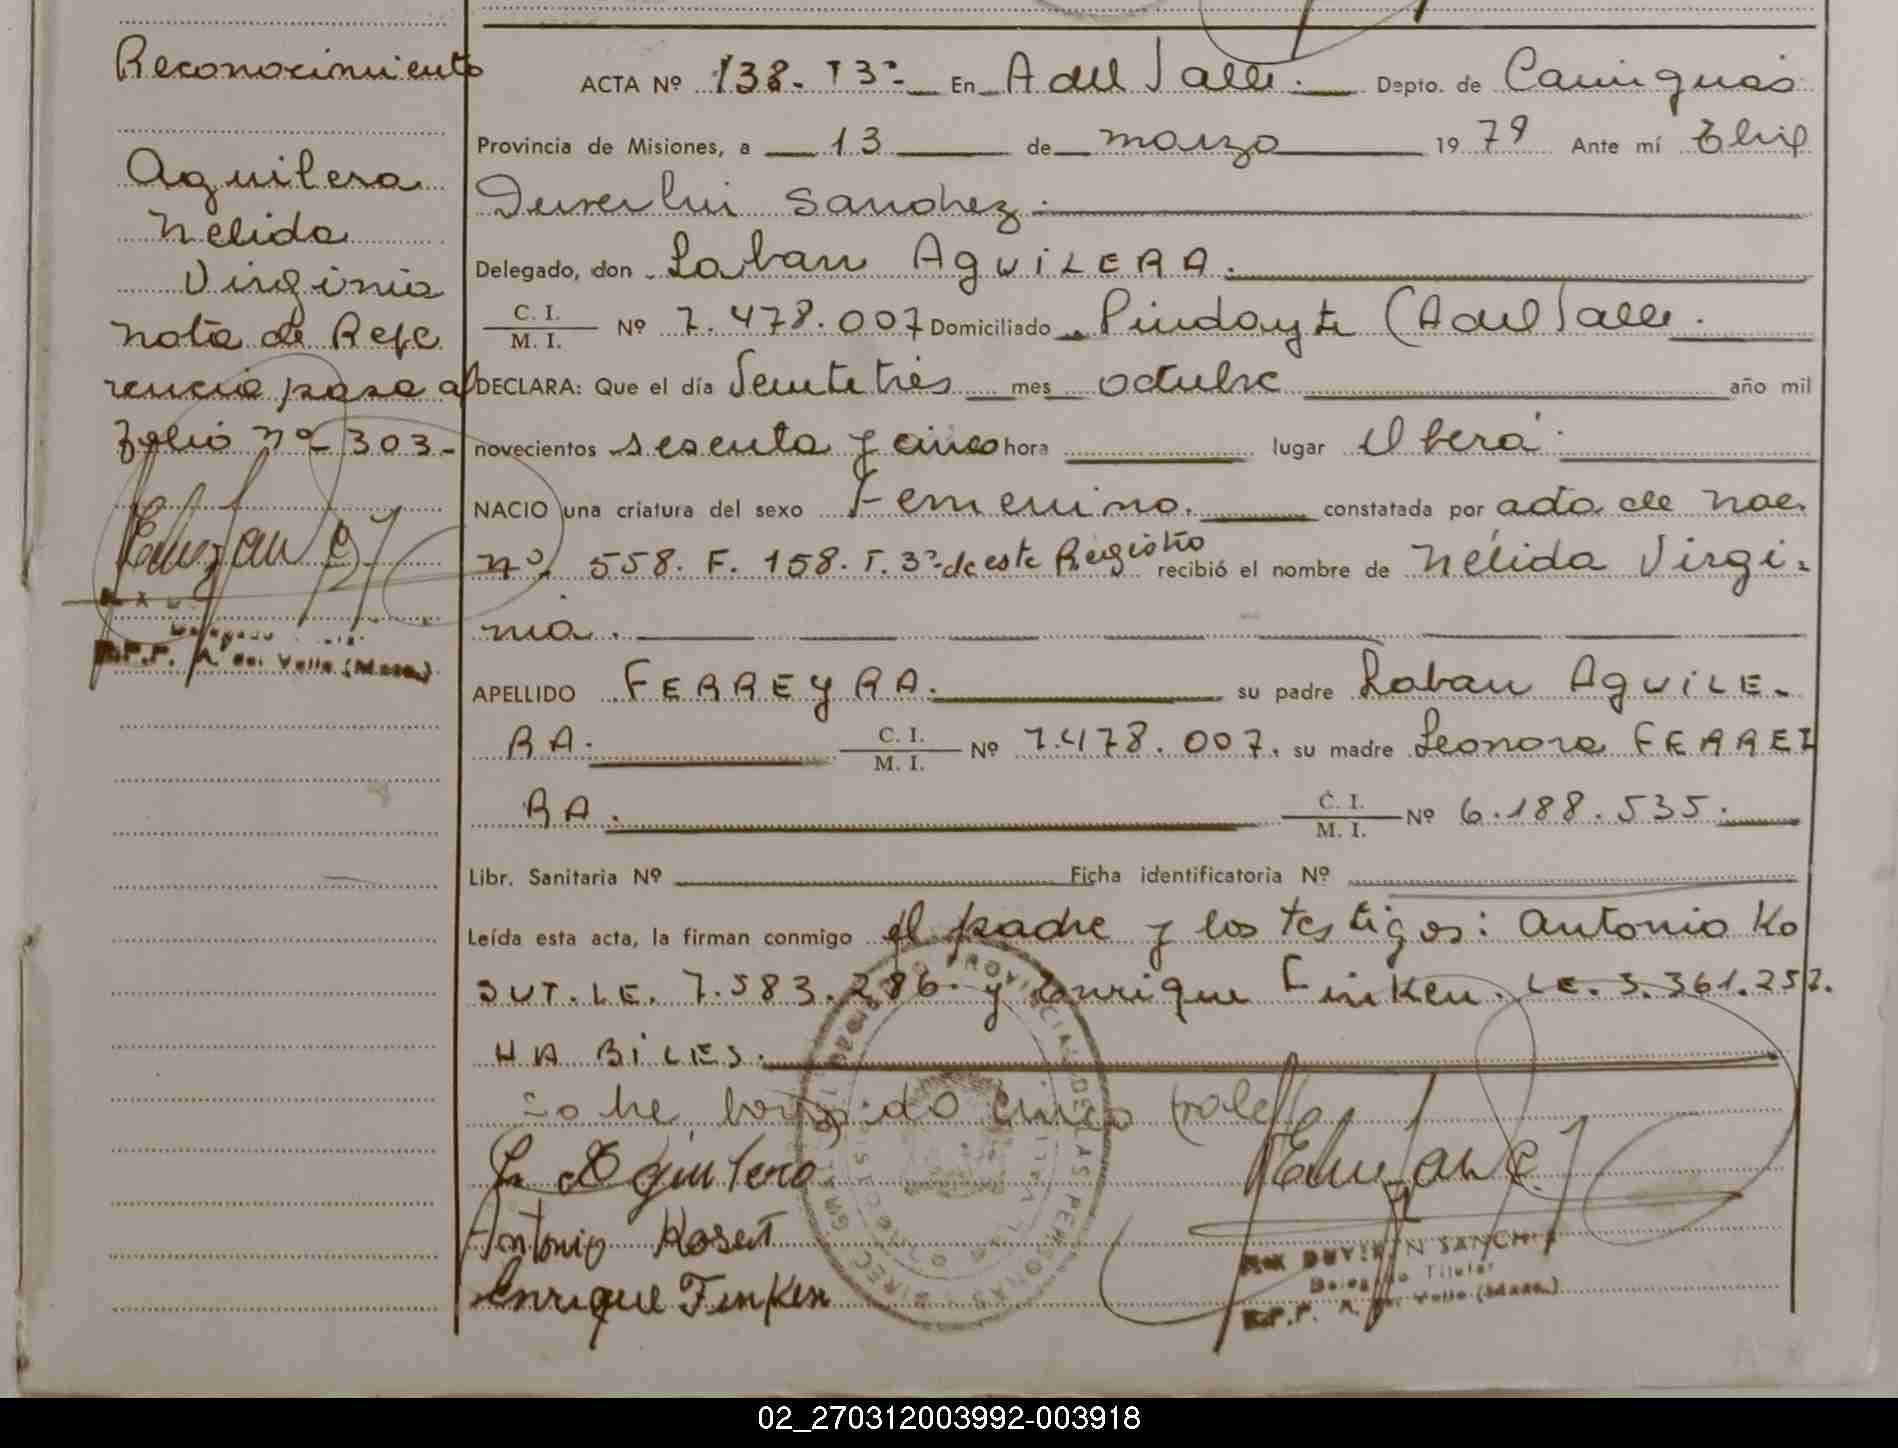 Reconocimiento
Aguilera
Nelida
Virginia
Nota de Refe
rencia pasa al
folio nº 303-
R.P.P. A. del Valle (Mnes.)
ACTA Nº 138- T3º- En A del Valle. Depto. de Cainguás
Provincia de Misiones, a 13 de marzo 1979 Ante mí
Sanchez.
Delegado, don Laban AGUILERA.
C. I.
M. I.
Nº 7.478.007 Domiciliado Pindayti (A del Valle.
DECLARA: Que el día Veintetrés mes octubre año mil
novecientos sesenta y cinco hora lugar Oberá.
NACIO una criatura del sexo Femenino. constatada por acta de nac.
nº. 558. F. 158. T. 3º. de este Registro recibió el nombre de Nélida Virgi-
nia.
APELLIDO FERREYRA. su padre Laban AGUILE-
RA. C. I.
M. I.
Nº 7.478.007. su madre Leonora FERREI
RA. C. I.
M. I.
Nº 6.188.535.
Libr. Sanitaria Nº Ficha identificatoria Nº
Leída esta acta, la firman conmigo el padre y los testigos: Antonio Ko
SUT. LE. 7.583.286. y Enrique Finken. LE. 3.361.257.
HABILES.
L. Aguilera
Antonio Kosut
Enrique Finken
DIREC. GRAL. DEL REGISTRO PROVINCIAL DE LAS PERSONAS
SANCHEZ
Delegado Titular
R.P.P. A. del Valle (Mnes.)
02_270312003992-003918